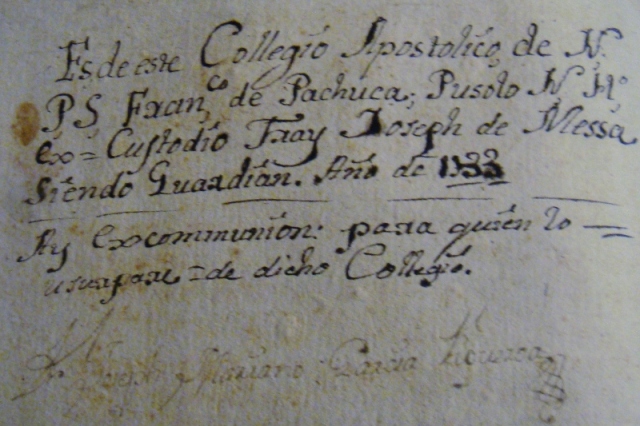 Es de este Collegio Apostolico, de N.
P S Fran,co de Pachuca; Pusolo N H.o
ex= Custodio Fray Joseph de Messa
Siendo Guardian. Año de
Ay excommunion: para quien lo =
usurpare = de dicho Collegio.
Joseph Mariano Garcia Figueroa